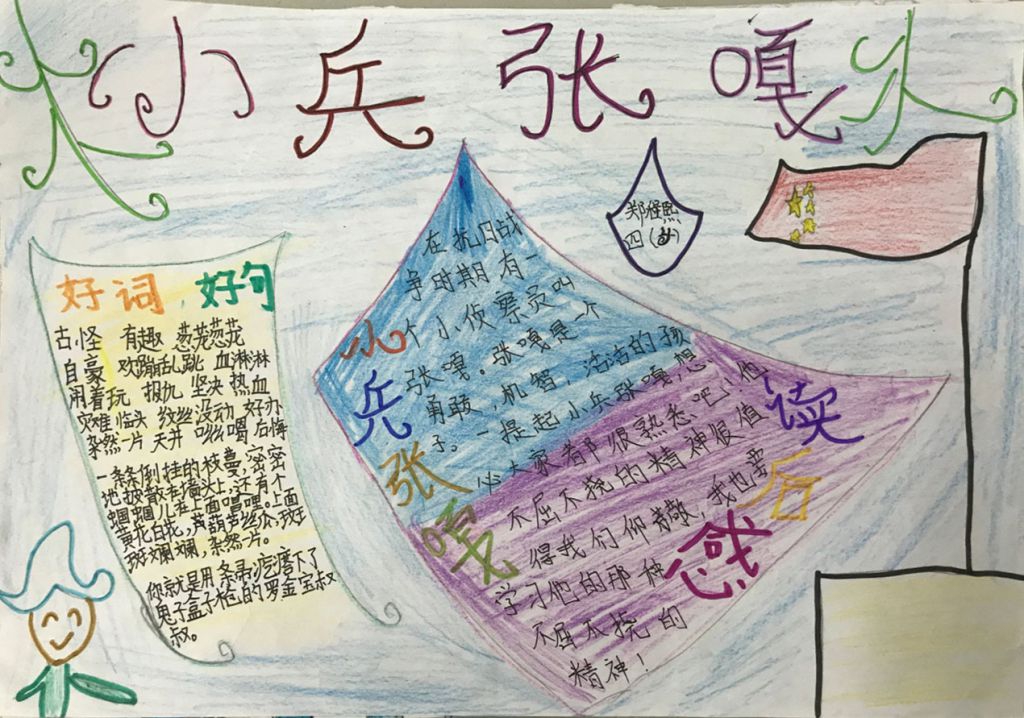 小兵张嘎
郑
四（
好词 好句
古怪 有趣 葱茏葱茏
自豪 欢蹦乱跳 血淋淋
闹着玩 报仇 坚决 热血
灾难临头 纹丝没动 好办
杂然一片 天井 吆喝 后悔
一条条倒挂的枝蔓,密密
地披散在墙头上,还有个
蝈蝈儿在上面唱哩。上面
黄花白花,黄葫芦丝瓜,斑
斑斓斓,杂然一片。
你就是用条帚疙瘩下了
鬼子盒子枪的罗金宝叔
叔。
小兵张嘎
读后感
在抗日战
争时期有一
个小侦察员叫
张嘎。张嘎是一个
勇敢,机智,活泼的孩
子。一提起小兵张嘎,想
必大家都很熟悉吧!他
不屈不挠的精神很值
得我们仰敬,我也要
学习他的那种
不屈不挠的
精神!